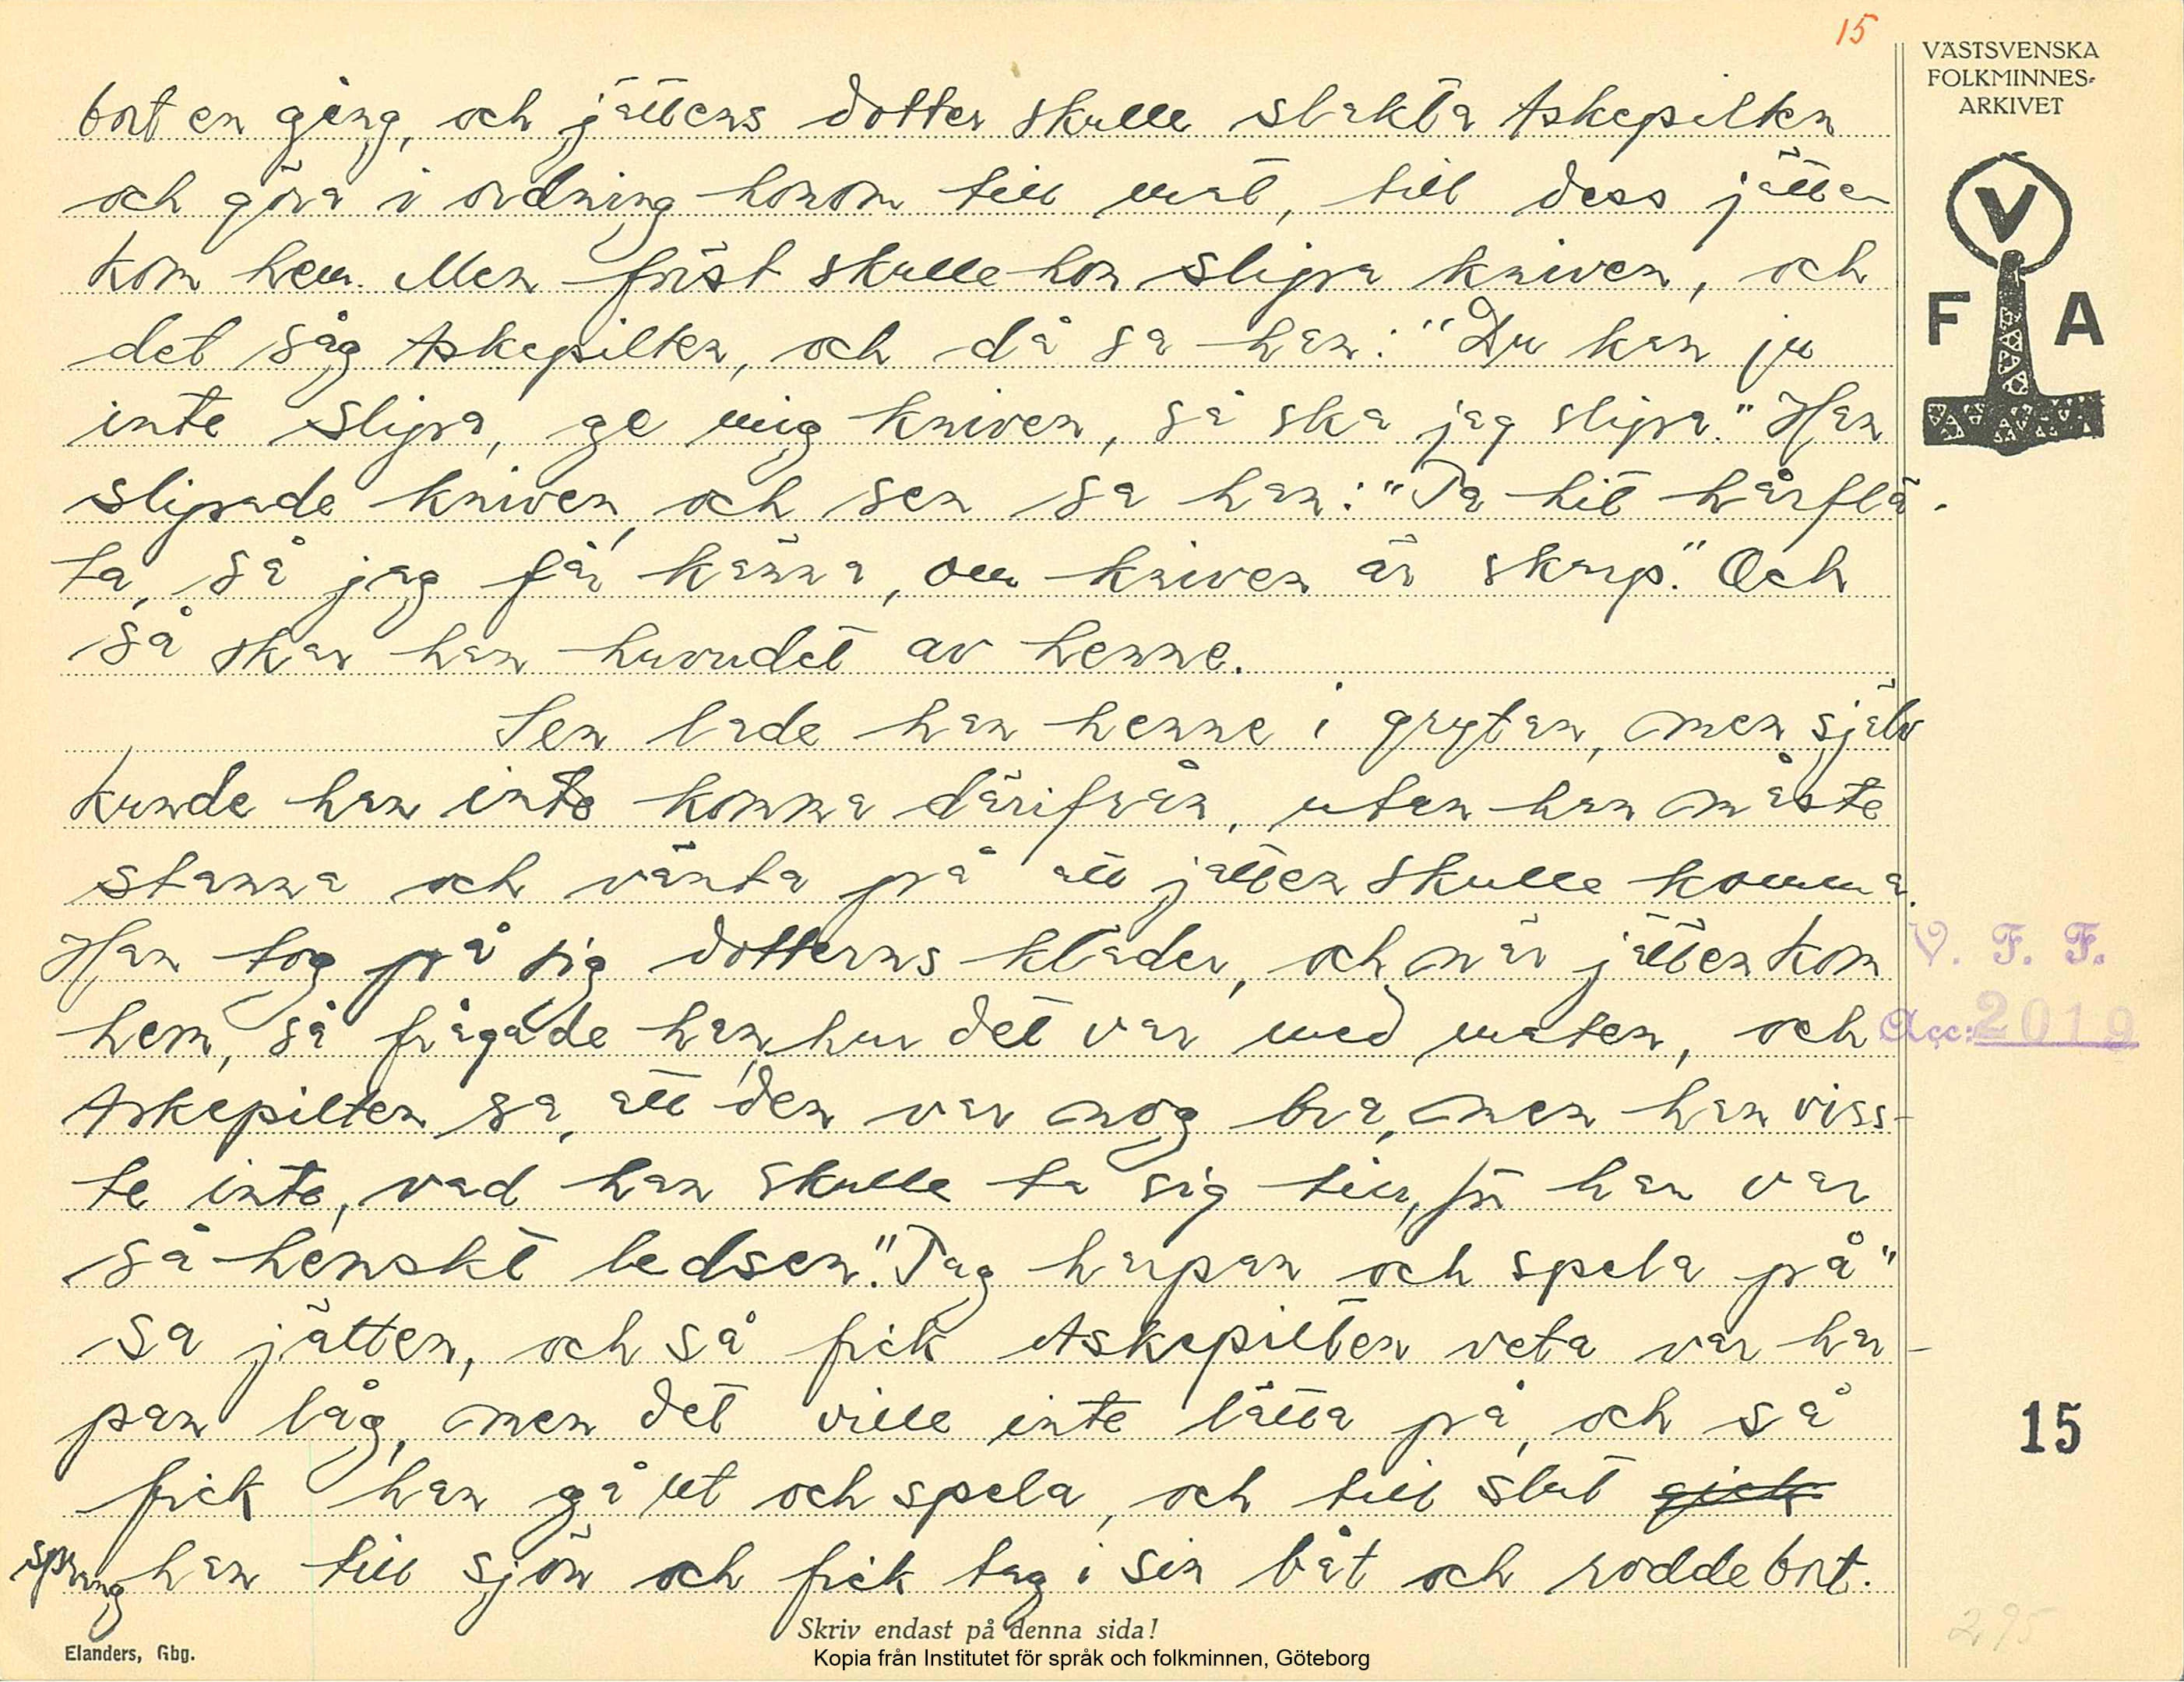 15
VÄSTSVENSKA
FOLKMINNES-
ARKIVET
V
F A
bort en gång, och jättens dotter skulle slakta Askepilten
och göra i ordning honom till mat, till dess jätten
kom hem. Men först skulle hon slipa kniven, och
det såg Askepilten, och då sa han: "Du kan ju
inte slipa, ge mig kniven, så ska jag slipa." Han
slipade kniven, och sen sa han: "Ta hit hårflä-
ta, så jag får känna, om kniven är skarp." Och
så skar han huvudet av henne.
Sen lade han henne i grytan, men själv
kunde han inte komma därifrån, utan han måste
stanna och vänta på att jätten skulle komma.
Han tog på sig dotterns kläder, och när jätten kom
hem, så frågade han, hur det var med maten, och
Askepilten sa, att den var nog bra, men han viss-
te inte, vad han skulle ta sig till, för han var
så hemskt ledsen. "Tag harpan och spela på"
sa jätten, och så fick Askepilten veta var har-
pan låg, men det ville inte låtta på, och så
fick han gå ut och spela, och till slut gick
sprang han till sjön och fick tag i sin båt och rodde bort.
V. F. F.
Acc: 2019
15
Skriv endast på denna sida!
Elanders, Gbg.
Kopia från Institutet för språk och folkminnen, Göteborg
295